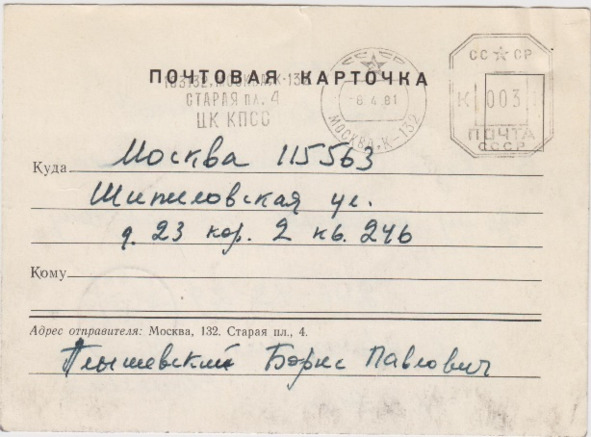 ПОЧТОВАЯ КАРТОЧКА
103132, МОСКВА, К-132
СТАРАЯ пл. 4
ЦК КПСС
-8.4.81
МОСКВА, К-132
СССР
К 003
ПОЧТА
СССР
Куда Москва 115563
Шипиловская ул.
д. 23 кор. 2 кв. 246
Кому
Адрес отправителя: Москва, 132. Старая пл., 4.
Плышевский Борис Павлович